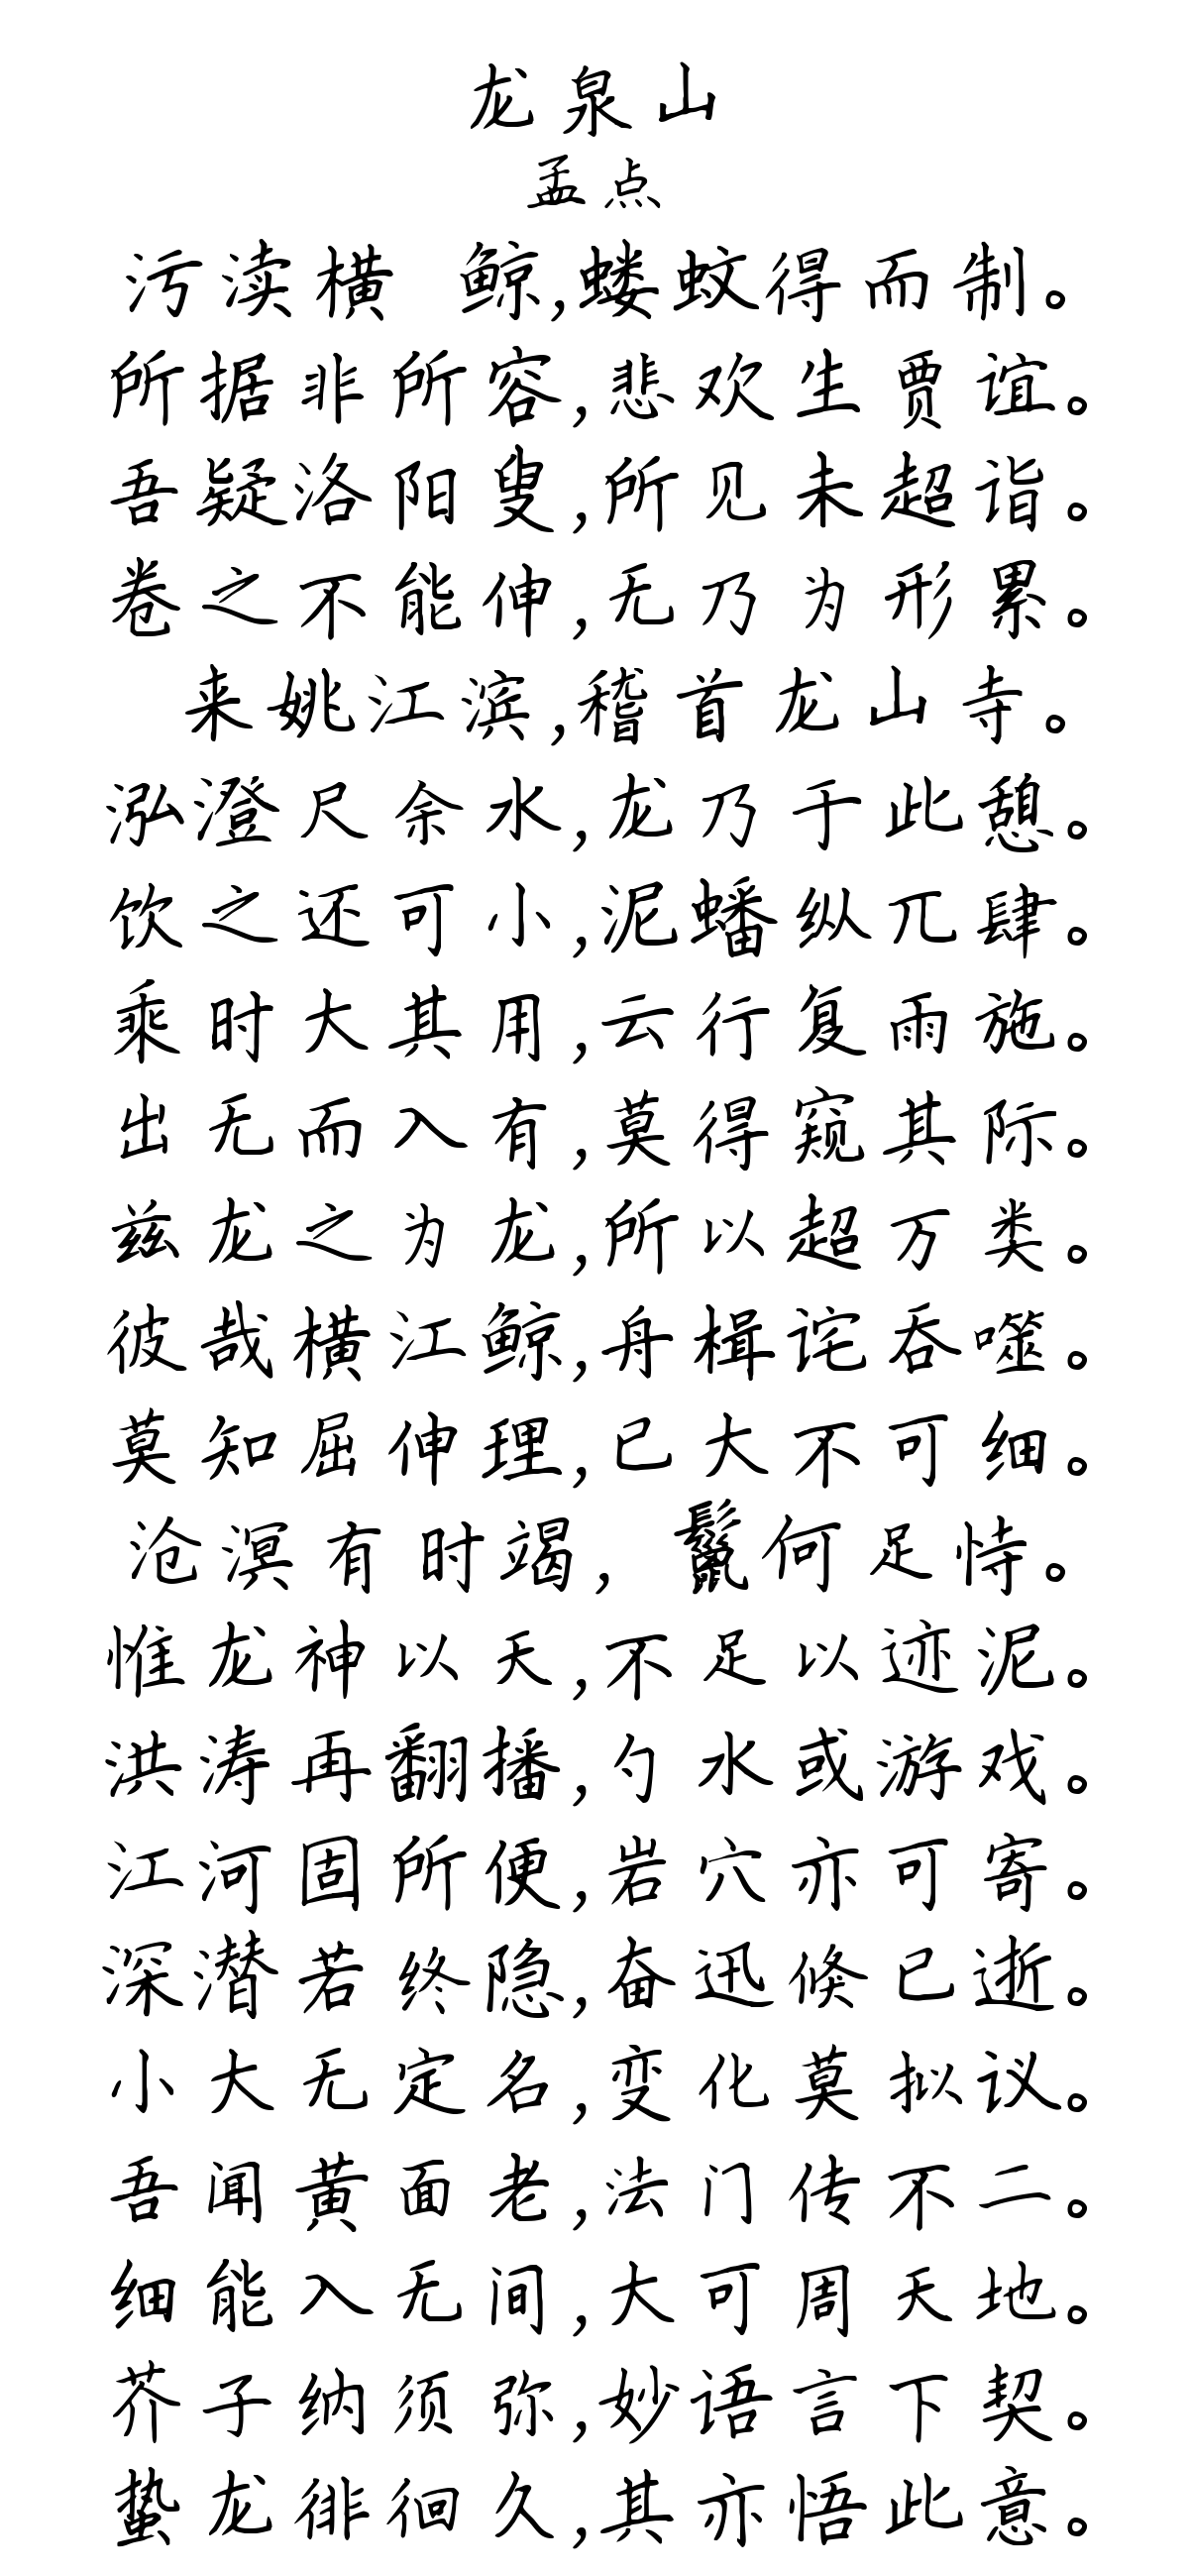 龙泉山
孟点
污渎横 鲸,蝼蚊得而制。
所据非所容,悲欢生贾谊。
吾疑洛阳叟,所见未超诣。
卷之不能伸,无乃为形累。
来姚江滨,稽首龙山寺。
泓澄尺余水,龙乃于此憩。
饮之还可小,泥蟠纵兀肆。
乘时大其用,云行复雨施。
出无而入有,莫得窥其际。
兹龙之为龙,所以超万类。
彼哉横江鲸,舟楫诧吞噬。
莫知屈伸理,已大不可细。
沧溟有时竭, 鬣何足恃。
惟龙神以天,不足以迹泥。
洪涛再翻播,勺水或游戏。
江河固所便,岩穴亦可寄。
深潜若终隐,奋迅倏已逝。
小大无定名,变化莫拟议。
吾闻黄面老,法门传不二。
细能入无间,大可周天地。
芥子纳须弥,妙语言下契。
蛰龙徘徊久,其亦悟此意。